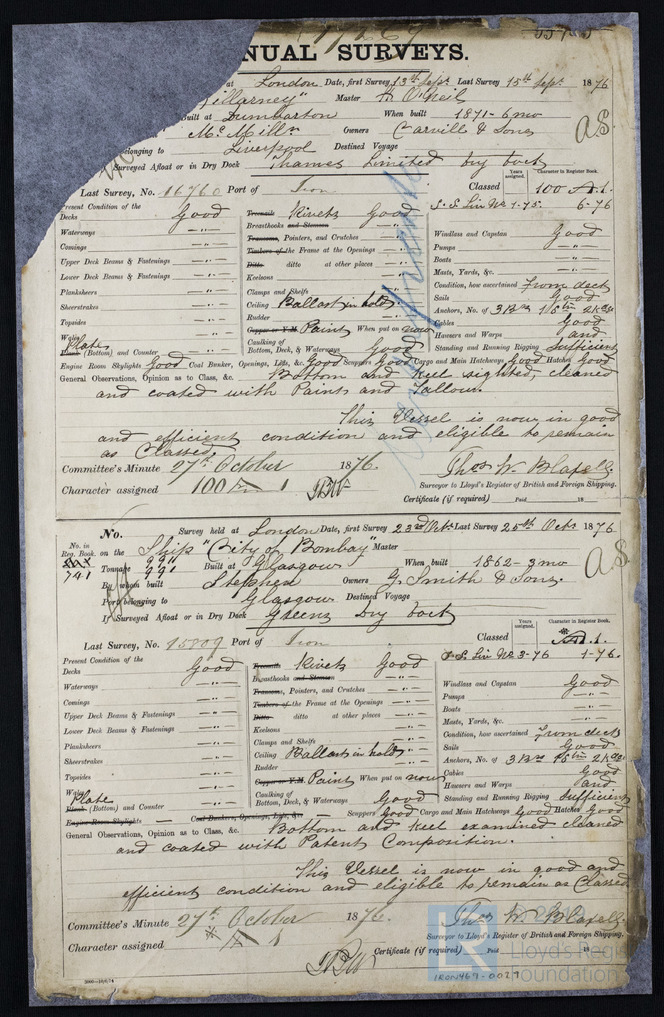 NUAL SURVEYS.
at London Date, first Survey 13th Sept. Last Survey 15th Sept. 1876
Killarney" Master O'Neil
Built at Dumbarton When built 1871 - 6 mo
McMillan Owners Carvill & Sons
belonging to Liverpool Destined Voyage
Surveyed Afloat or in Dry Dock Thames Limited Dry Dock
A.S.
Last Survey, No. 16760 Port of Iron Classed 100 A.1.
Years assigned. Character in Register Book.
S.S. Liv No. 1-75. 6-76
Present Condition of the
Decks Good
Waterways — " —
Comings — " —
Upper Deck Beams & Fastenings — " —
Lower Deck Beams & Fastenings — " —
Planksheers — " —
Sheerstrakes — " —
Topsides — " —
Wales — " —
Plate
Plank (Bottom) and Counter — " —
Treenails Rivets Good
Breasthooks and Stemson — " —
Transoms, Pointers, and Crutches — " —
Timbers of the Frame at the Openings — " —
Ditto ditto at other places — " —
Keelsons — " —
Clamps and Shelfs — " —
Ceiling Ballast in hold.
Rudder — " —
Copper or Y.M. Paint When put on now
Caulking of
Bottom, Deck, & Waterways Good
Windlass and Capstan Good
Pumps — " —
Boats — " —
Masts, Yards, &c. — " —
Condition, how ascertained From deck
Sails Good
Anchors, No. of 3 Brs 1 Stm 2 Kdgs
Cables Good
Hawsers and Warps and
Standing and Running Rigging Sufficient
Engine Room Skylights Good Coal Bunker, Openings, Lids, &c. Good Scuppers Good Cargo and Main Hatchways Good Hatches Good
General Observations, Opinion as to Class, &c. Bottom and keel sighted, cleaned
and coated with Paints and Tallow.
This Vessel is now in good
and efficient condition and eligible to remain
as Classed.
Committee's Minute 27th October 1876.
Character assigned 100 A 1
Thos W. Blaxell
Surveyor to Lloyd's Register of British and Foreign Shipping.
Certificate (if required) Paid 18
No. Survey held at London Date, first Survey 23rd Oct. Last Survey 25th Oct. 1876
No. in
Reg. Book.
741
on the Ship "City of Bombay" Master
Tonnage 991 Built at Glasgow When built 1862 - 3 mo
By whom built Stephen Owners G. Smith & Sons.
Port belonging to Glasgow Destined Voyage
If Surveyed Afloat or in Dry Dock Greens Dry Dock
A.S.
Last Survey, No. 15809 Port of Iron Classed A.1.
Years assigned. Character in Register Book.
S.S. Liv No 3-76 1-76.
Present Condition of the
Decks Good
Waterways — " —
Comings — " —
Upper Deck Beams & Fastenings — " —
Lower Deck Beams & Fastenings — " —
Planksheers — " —
Sheerstrakes — " —
Topsides — " —
Wales — " —
Plate
Plank (Bottom) and Counter — " —
Treenails Rivets Good
Breasthooks and Stemson — " —
Transoms, Pointers, and Crutches — " —
Timbers of the Frame at the Openings — " —
Ditto ditto at other places — " —
Keelsons — " —
Clamps and Shelfs — " —
Ceiling Ballast in hold
Rudder — " —
Copper or Y.M. Paint When put on now
Caulking of
Bottom, Deck, & Waterways Good
Windlass and Capstan Good
Pumps — " —
Boats — " —
Masts, Yards, &c. — " —
Condition, how ascertained From deck
Sails Good
Anchors, No. of 3 Brs 1 Stm 2 Kdgs
Cables Good
Hawsers and Warps and
Standing and Running Rigging Sufficient
Engine Room Skylights — Coal Bunkers, Openings, Lids, &c. — Scuppers Good Cargo and Main Hatchways Good Hatches Good
General Observations, Opinion as to Class, &c. Bottom and keel examined cleaned
and coated with Patent Composition.
This Vessel is now in good and
efficient condition and eligible to remain as Classed.
Committee's Minute 27th October 1876.
Character assigned A 1
Thos W. Blaxell
Surveyor to Lloyd's Register of British and Foreign Shipping.
Certificate (if required) Paid 18
Lloyd's Register
Foundation
IRON469-0027